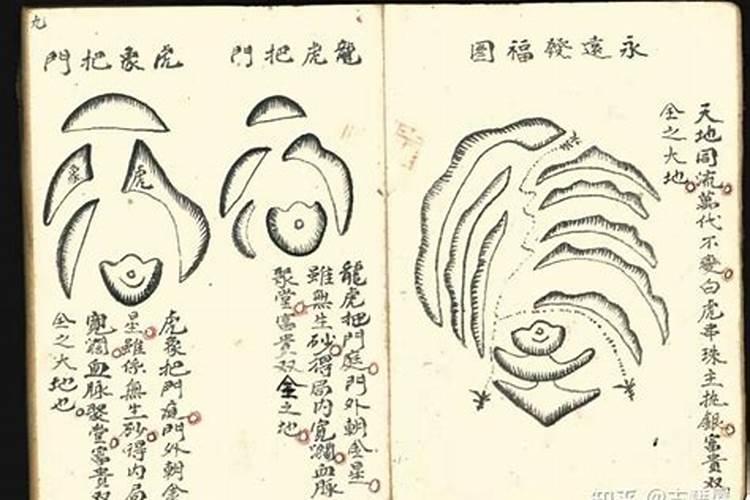 永遠發福圖
天地同流萬代不變白虎串珠主挑銀富貴双
全之大地
龍虎把門
龍虎把門庭門外朝金星
雖無生砂得局内寬濶血脉
聚堂富貴双全之地
虎象把門
象
虎
虎象把門庭門外朝金
星雖係無生砂得内局
寬濶血脉聚堂富貴双
全之大地也
九
知乎